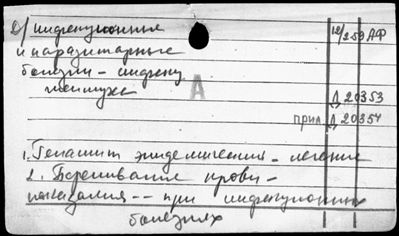 D/ инфекционные
12/259 АФ
и паразитарные
болезни – инфекц.
А
Д 20353
прил Д 20354
1. Гепатит эпидемический – лечение
2. Переливание крови –
показания -- при инфекционных
болезнях